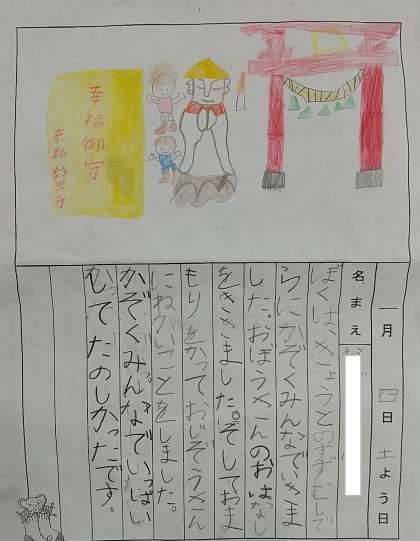 幸福御守
京都鈴虫寺
一月四日土よう日
名まえ
ぼくは、きょうとのすずむしで
らにかぞくみんなでいきま
した。おぼうさんのおはなし
をききました。そしておま
もりをかっておじぞうさん
にねがいごとをしました。
かぞくみんなでいっぱい
たのしかったです。